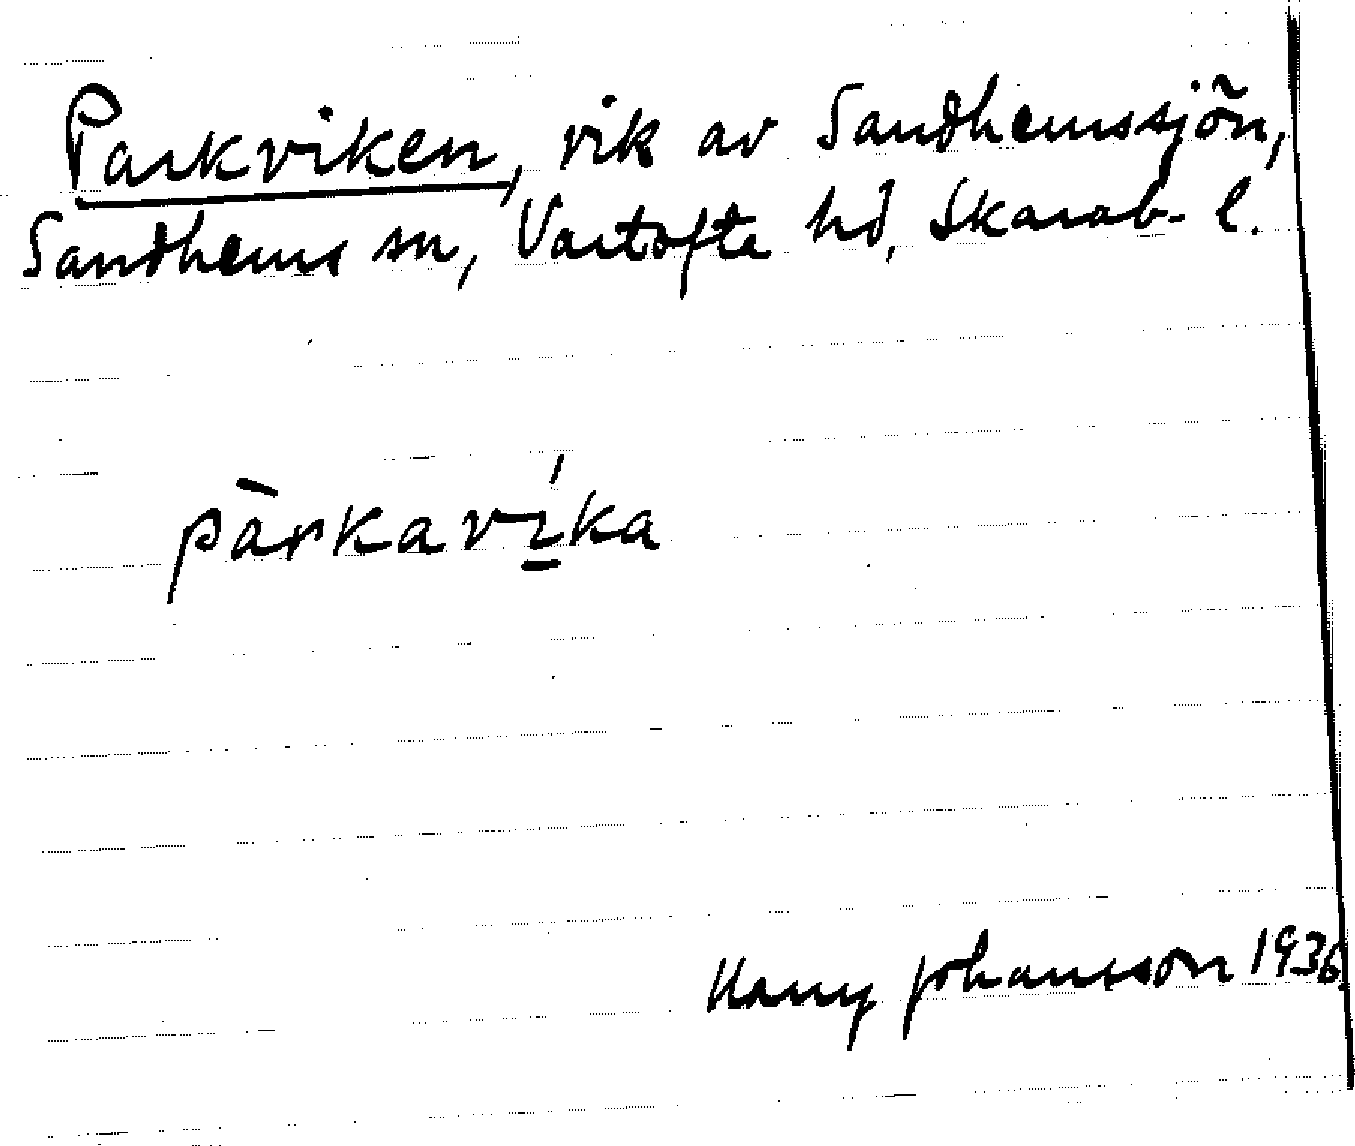 Parkviken, vik av Sandhemssjön,
Sandhems sn, Vartofte hd, Skarab- l.
pàrkaví̱ka
Harry Johansson 1936.